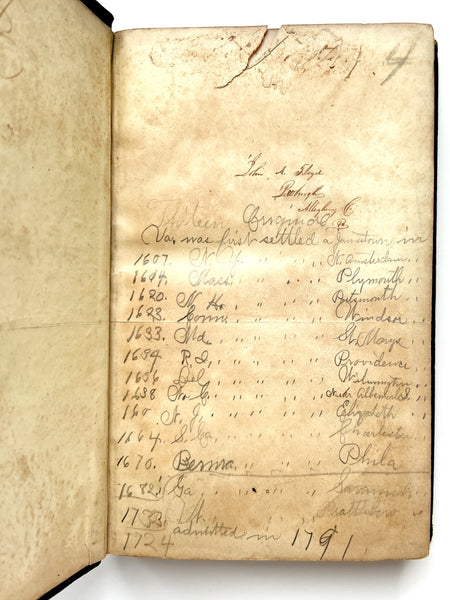 4
John A. Floyd
Allegheny C
Pa
Thirteen
Va. was first settled a Jamestown in
1607. N. Y. " " " N. Amsterdam "
1614. Mass. " " " Plymouth "
1620. N. H. " " "
1623. Conn. " " " Windsor "
1633. Md. " " " St. Marys "
1634 R. I. " " " Providence "
1636 Del. " " " Wilmington "
1638 N. C. " " " Albemarle
160 N. J. " " " Elizabeth "
1664. S. Ca " " " Charleston "
1670. Penna. " " " Phila
1682. Ga " " " Savannah "
1733. Vt. " " " Brattleboro "
1724 admitted in 1791